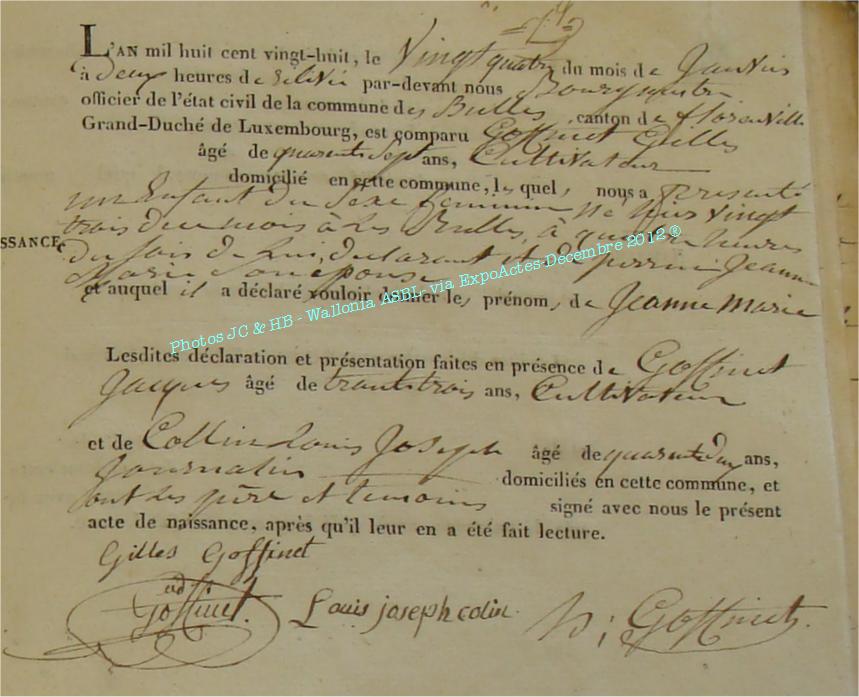 L'AN mil huit cent vingt-huit, le Vingt quatre du mois de Janvier
à deux heures de relevée par-devant nous Bourgmestre
officier de l'état civil de la commune des Bulles canton de florenville
Grand-Duché de Luxembourg, est comparu Goffinet Gilles
âgé de quarente Sept ans, Cultivateur
domicilié en cette commune, lequel nous a presenté
un Enfant du Sexe feminin né hier vingt
trois du mois à Les Bulles, à quatre heures
SSANCE.
du soir de lui, declarant et de perrin Jeanne
Marie Son epouse
et auquel il a déclaré vouloir donner les prénoms de Jeanne Marie
Photos JC & HB - Wallonia ASBL, via ExpoActes-Decembre 2012 ®
Lesdites déclaration et présentation faites en présence de Goffinet
Jacques âgé de trante trois ans, Cultivateur
et de Collin Louis Joseph âgé de quarente deux ans,
Journalier domiciliés en cette commune, et
ont les père et temoins signé avec nous le présent
acte de naissance, après qu'il leur en a été fait lecture.
Gilles Goffinet
Goffinet. Louis joseph colin h; Goffinet.